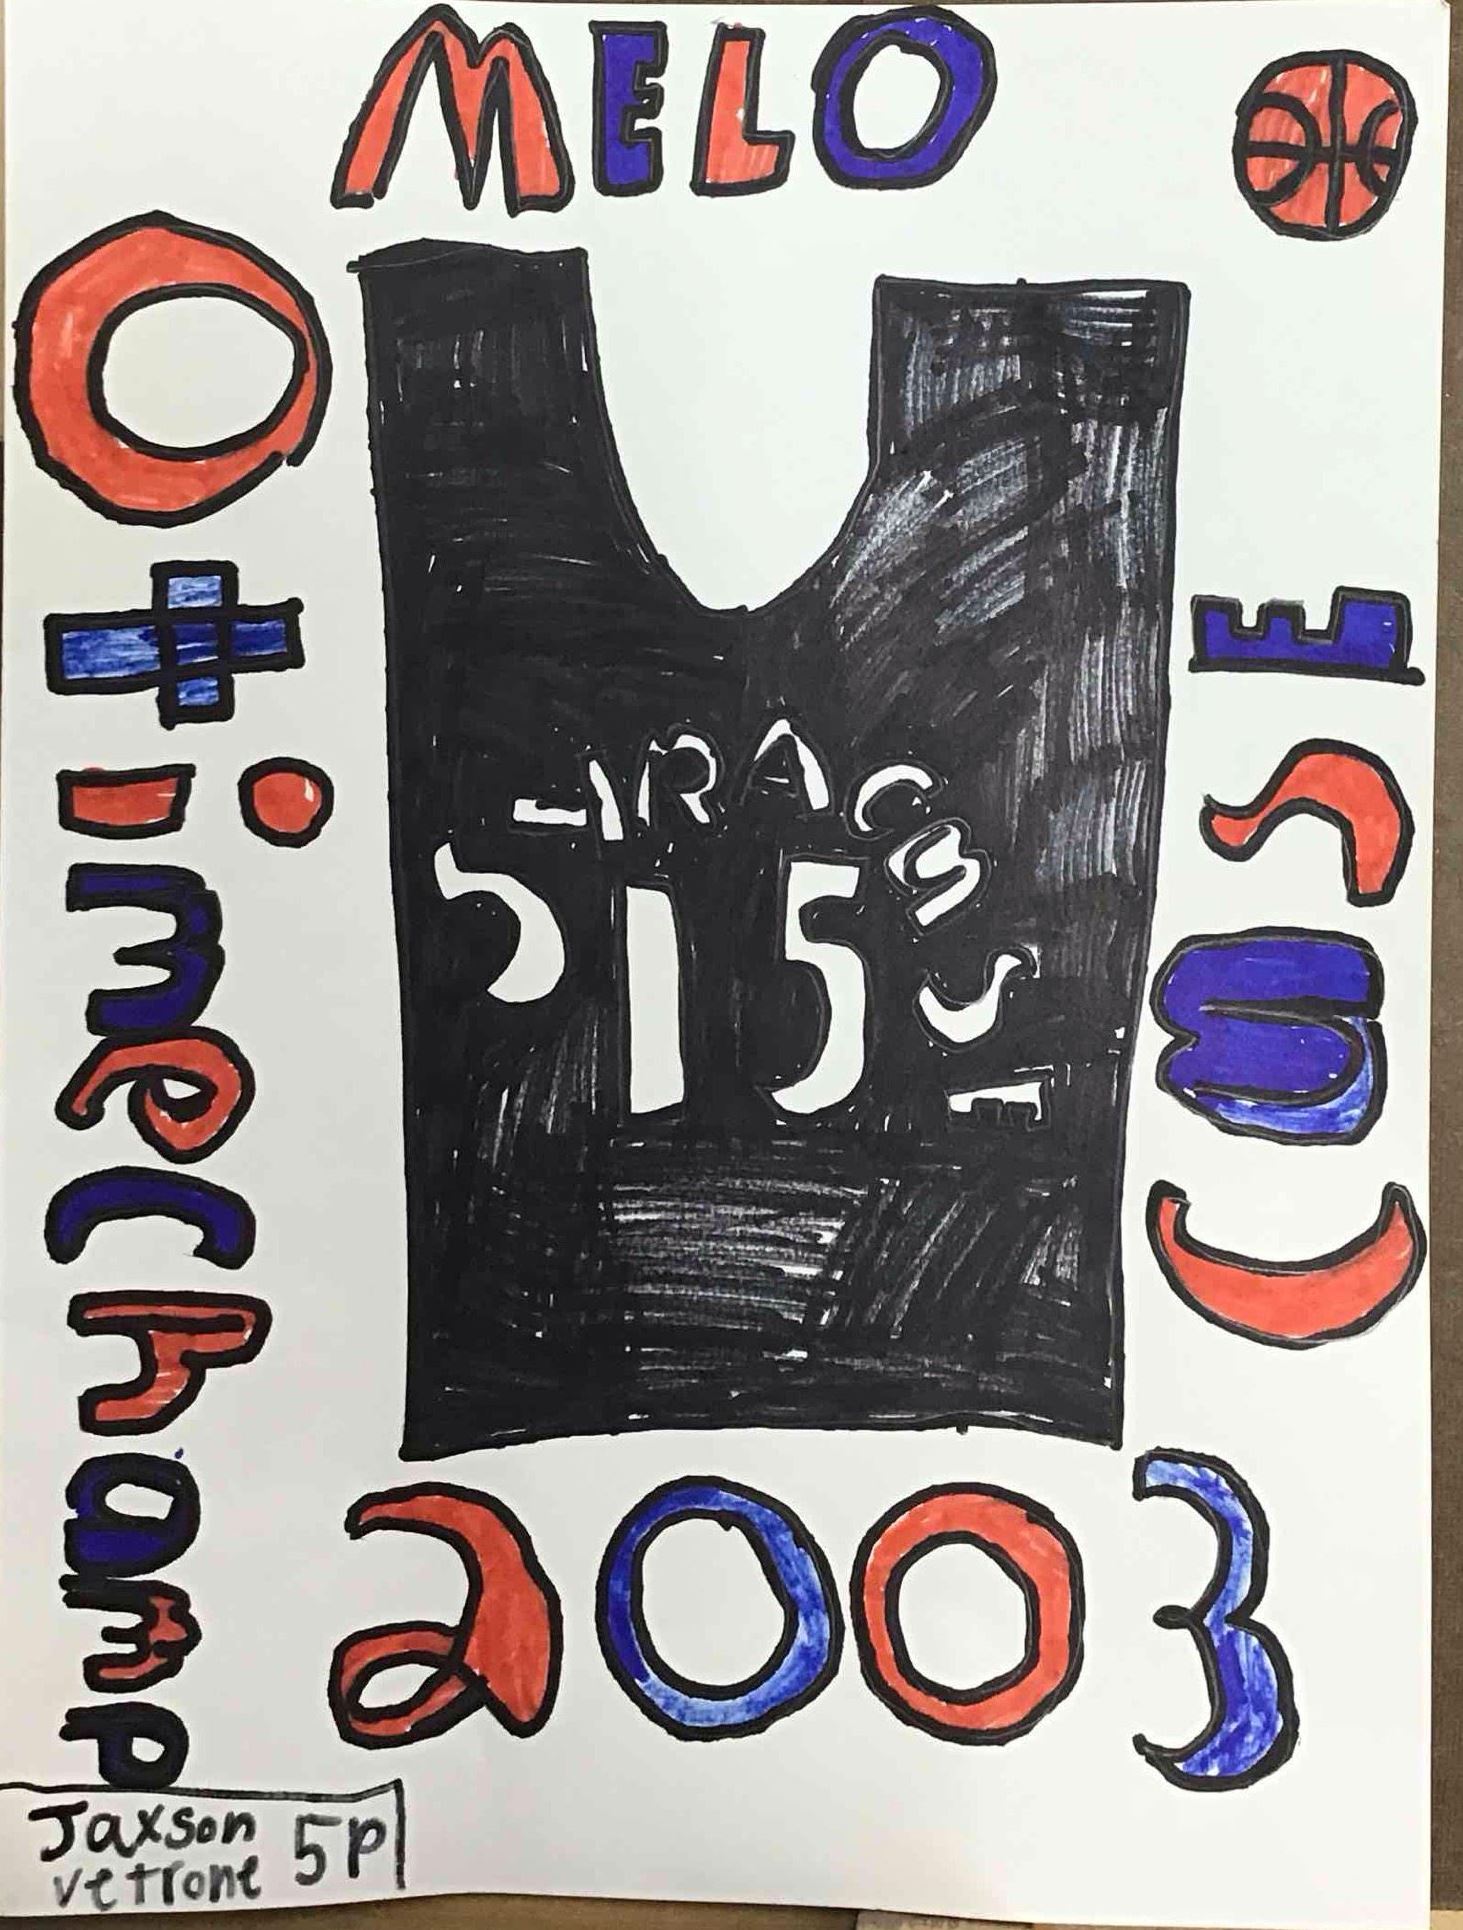 MELO
Otimechamp
SYRACUSE
15
CUSE
2003
Jaxson
vetrone
5P